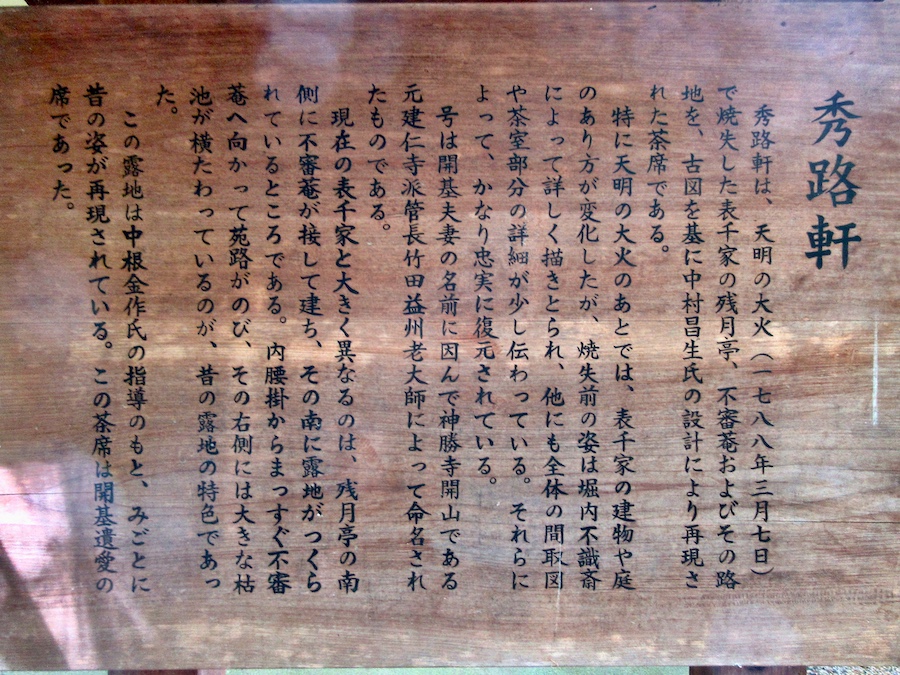 秀路軒
秀路軒は、天明の大火（一七八八年三月七日）
で焼失した表千家の残月亭、不審菴およびその路
地を、古図を基に中村昌生氏の設計により再現さ
れた茶席である。
特に天明の大火のあとでは、表千家の建物や庭
のあり方が変化したが、焼失前の姿は堀内不識斎
によって詳しく描きとられ、他にも全体の間取図
や茶室部分の詳細が少し伝わっている。それらに
よって、かなり忠実に復元されている。
号は開基夫妻の名前に因んで神勝寺開山である
元建仁寺派管長竹田益州老大師によって命名され
たものである。
現在の表千家と大きく異なるのは、残月亭の南
側に不審菴が接して建ち、その南に露地がつくら
れているところである。内腰掛からまっすぐ不審
菴へ向かって苑路がのび、その右側には大きな枯
池が横たわっているのが、昔の露地の特色であっ
た。
この露地は中根金作氏の指導のもと、みごとに
昔の姿が再現されている。この茶席は開基遺愛の
席であった。